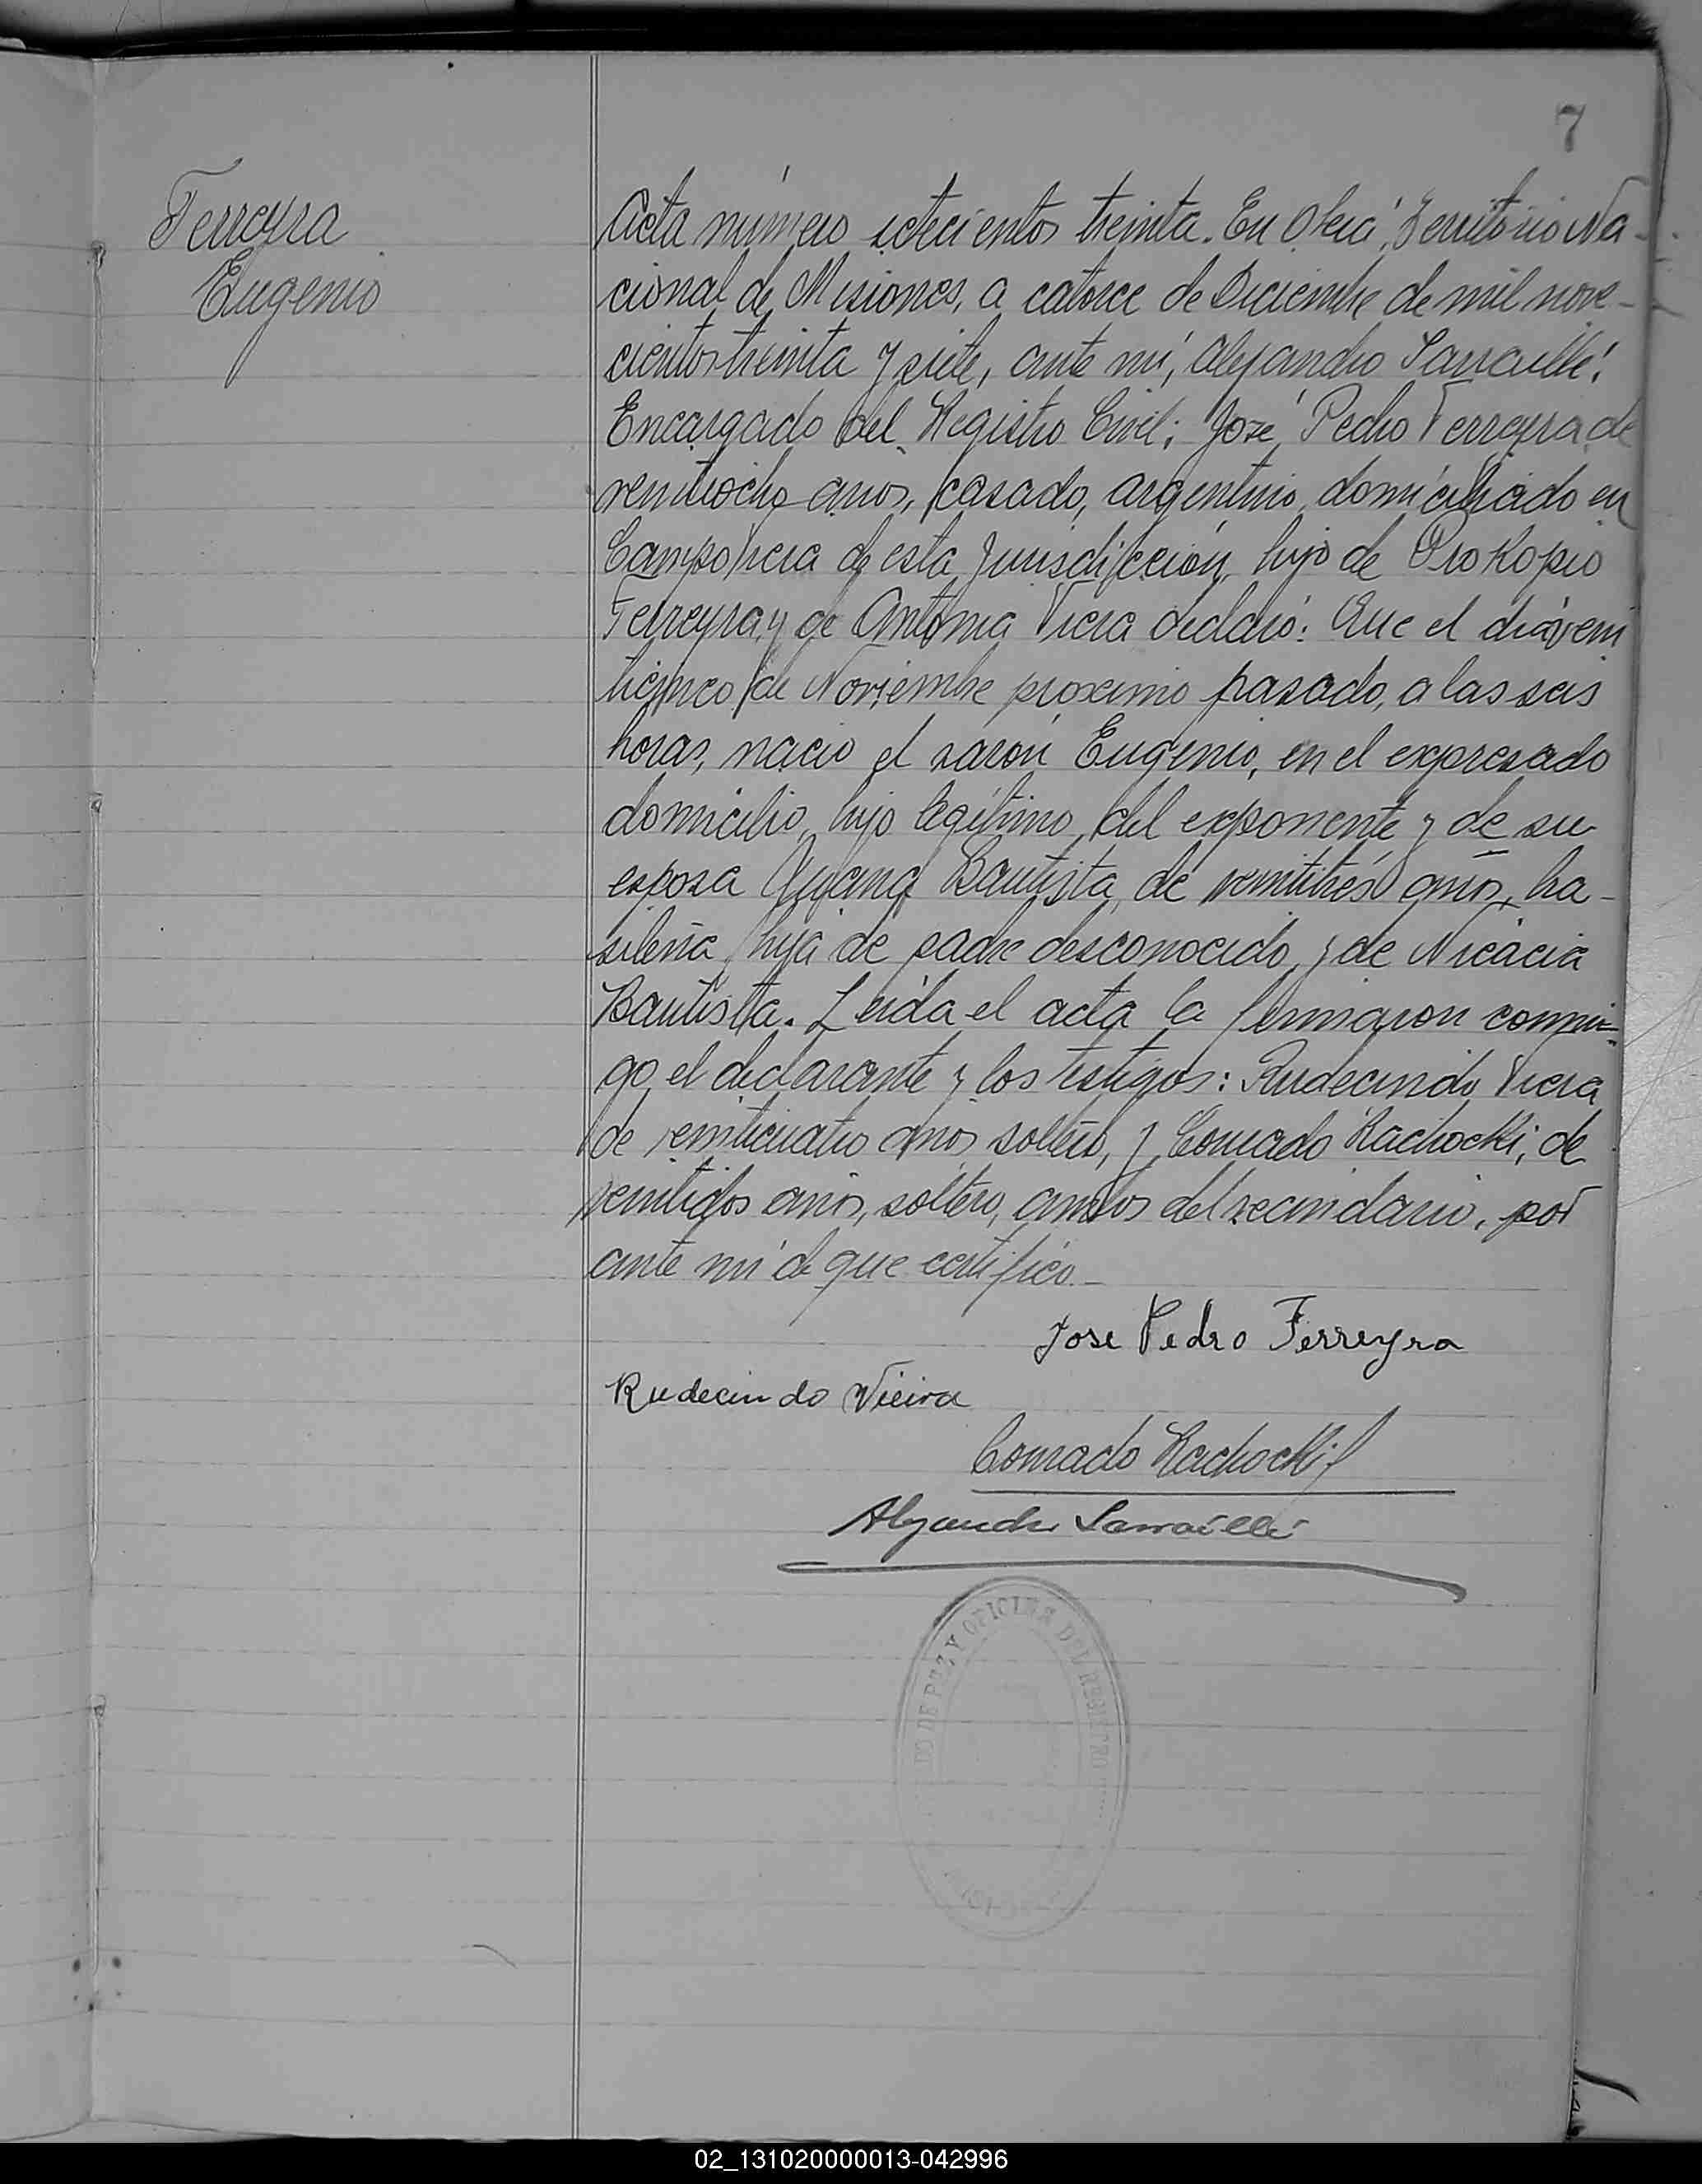 7
Ferreyra
Eugenio
Acta número setecientos treinta. En Oberá, Territorio Na-
cional de Misiones, a catorce de Diciembre de mil nove-
cientos treinta y siete, ante mí, Alejandro Sarraillé,
Encargado del Registro Civil; José Pedro Ferreyra de
veintiocho años, casado, argentino, domiciliado en
Campo Viera de esta Jurisdicción, hijo de Prokopio
Ferreyra, y de Antonia Viera declaró: Que el día vein
ticinco de Noviembre proximo pasado, a las seis
horas, nació el varón Eugenio, en el expresado
domicilio, hijo legítimo del exponente y de su
esposa Bautista, de veintitrés años, bra-
sileña, hija de padre desconocido, y de Nicacia
Bautista. Leída el acta la firmaron conmi-
go, el declarante y los testigos: Rudecindo Viera
de veinticuatro años soltero, y Conrado Rachocki, de
veintidos años, soltero, ambos del vecindario, por
ante mí de que certifico.-
Jose Pedro Ferreyra
Rudecindo Vieira
Conrado Rachocki
Alejandro Sarraillé
DO DE PAZ Y OFICINA DEL REGISTRO
02_131020000013-042996